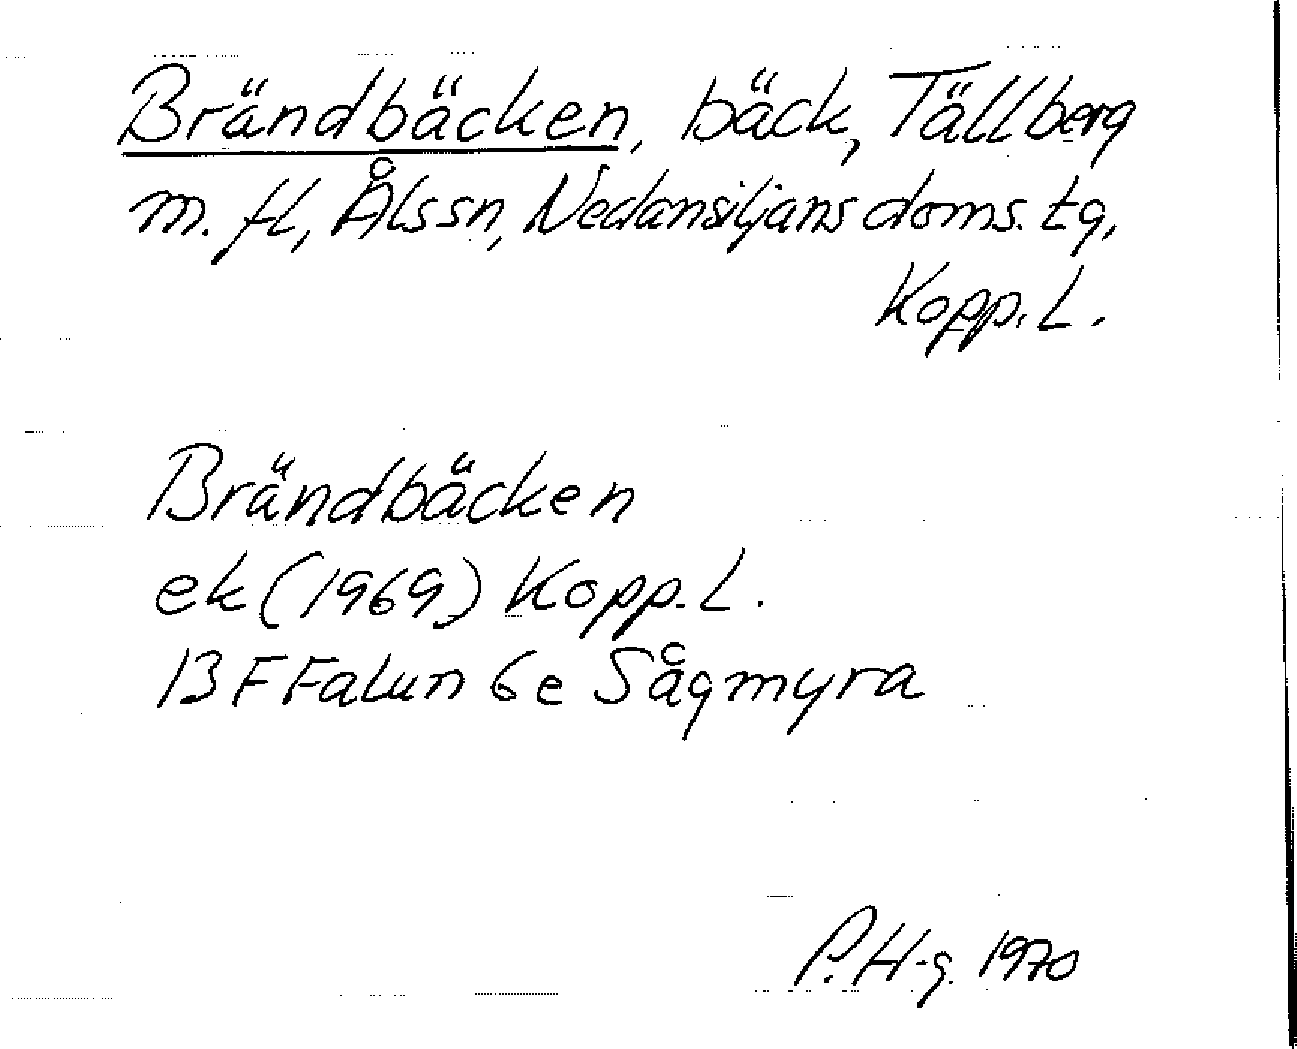 Brändbäcken, bäck, Tällberg
m. fl, Ålssn, Nedansiljans doms. tg,
Kopp. L.
Brändbäcken
ek (1969) Kopp. L.
13 F Falun 6e Sågmyra
P. H-g. 1970